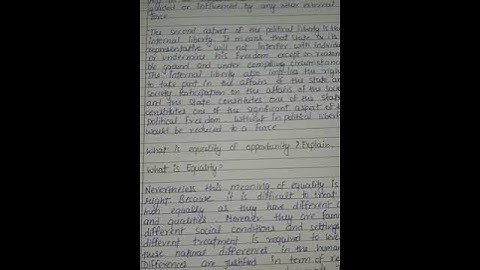 guided or influenced by any other external
force
The second aspect of the political liberty is the
internal liberty. It means that state or its
representative will not interfer with individu
or undermine his freedom except on reasona
ble ground and under compelling circumstanc
The internal liberty also implies the right
to take part in the affairs of the state and
society. Participation in the affairs of the socie
and the state constitutes one of the state
constitutes one of the significant aspect of
political freedom. Without in political libert
would be reduced to a farce
What is equality of opportunity? Explain.
What is Equality?
Nevertheless this meaning of equality is
Might Because it is difficult to treat
man equally as they have different c
and qualities. Moreover they are
different social conditions and settings
different treatment is required to
these natural differences in the human
Differences are justified in term of re